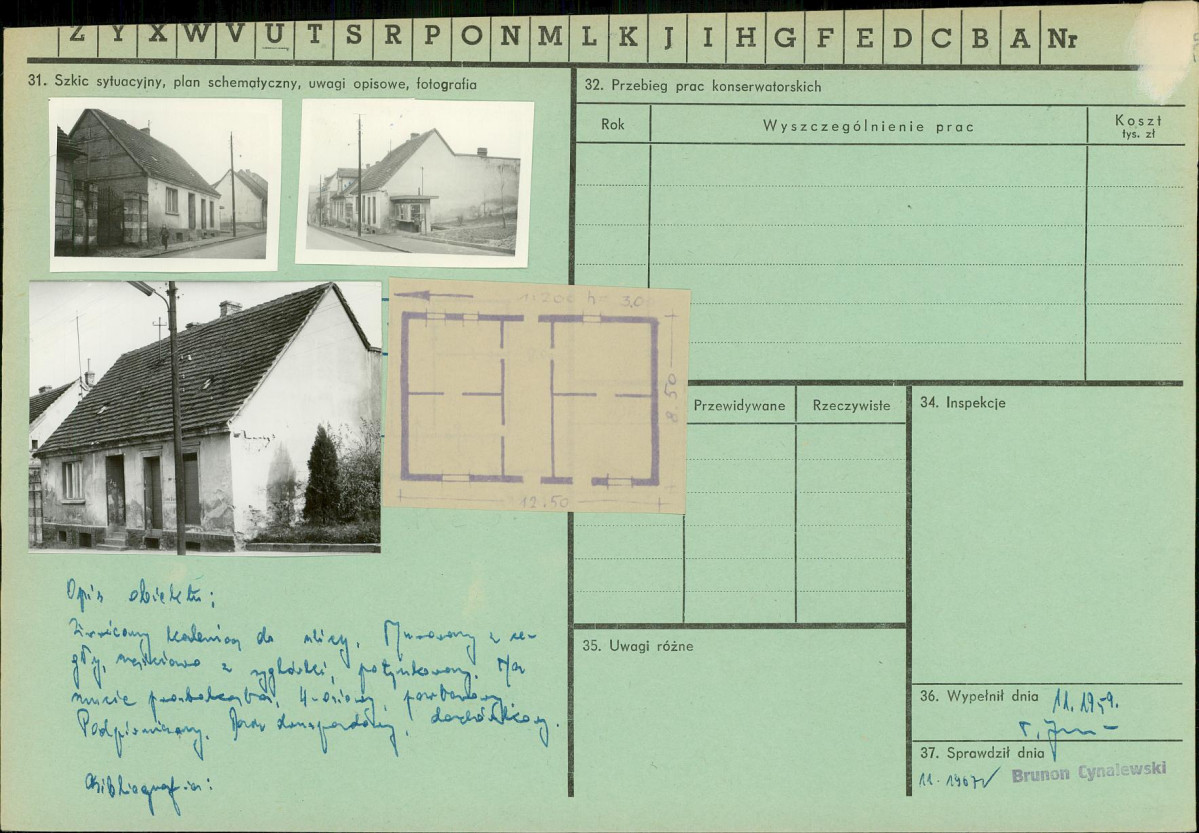 Z Y X W V U T S R P O N M L K J I H G F E D C B A Nr
31. Szkic sytuacyjny, plan schematyczny, uwagi opisowe, fotografia
1:200 h = 3.0
8.50
12.50
Opis obiektu:
Zwrócony kalenicą do ulicy. Murowany z ce-
gły, częściowo z ryglówki, potynkowany. Na
rzucie prostokąta, 4-osiowy, parterowy
Podpiwniczony. Dach dwuspadowy, dachówkowy.
Bibliografia:
32. Przebieg prac konserwatorskich
Rok
Wyszczególnienie prac
Koszt
tys. zł
Przewidywane
Rzeczywiste
34. Inspekcje
35. Uwagi różne
36. Wypełnił dnia 11.1959.
37. Sprawdził dnia
11.1967 Brunon Cynalewski